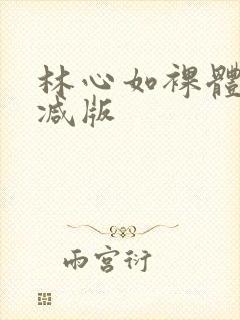 林心如裸體
減版
雨宮衍